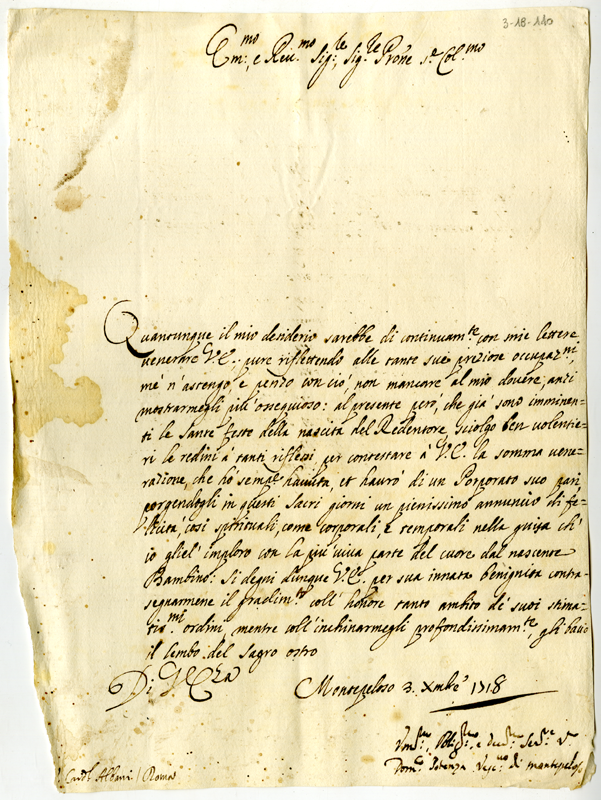 3-18-110
Em:mo, e Reu:mo Sig:re, Sig:re Prone, Col:mo
Quanounque il mio deniderio sarebbe di continuam:te con mie lettere
venerare V.E.: pure riflettendo alle tante sue preziose occupaz:ni,
mè n'astengo, e penzo con ciò, non mancare al mio douere, anzi
mostrarmegli più ossequioso: al presente però, che già sono imminen-
ti le Sante feste della nascita del Redentore, sciolgo ben volentie-
ri le redini à tanti riflessi, per contestare à V.E. la somma vene-
razione, che hò semp:e hauuta, et haurò di un Porporato suo pari,
porgendogli in questi Sacri giorni un pienissimo annuncio di fe-
licità, così spirituali, come corporali, e temporali nella guisa ch'
io gliel'imploro con la più viva parte del cuore dal nascente
Bambino. Si degni dunque V.E. per sua innata benignità contra-
segnarmene il gradim:to coll'honore tanto ambito de' suoi stima-
tis:mi ordini, mentre coll'inchinarmegli profondissimam:te, gli bacio
il lembo del sagro ostro
Di V.Eza
Montepeloso 3. Xmbre 1718
Obligmo, e Ser:re V:o
Dom:co Potenza Vesc:uo di Montepeloso
Card:l Albani / Roma